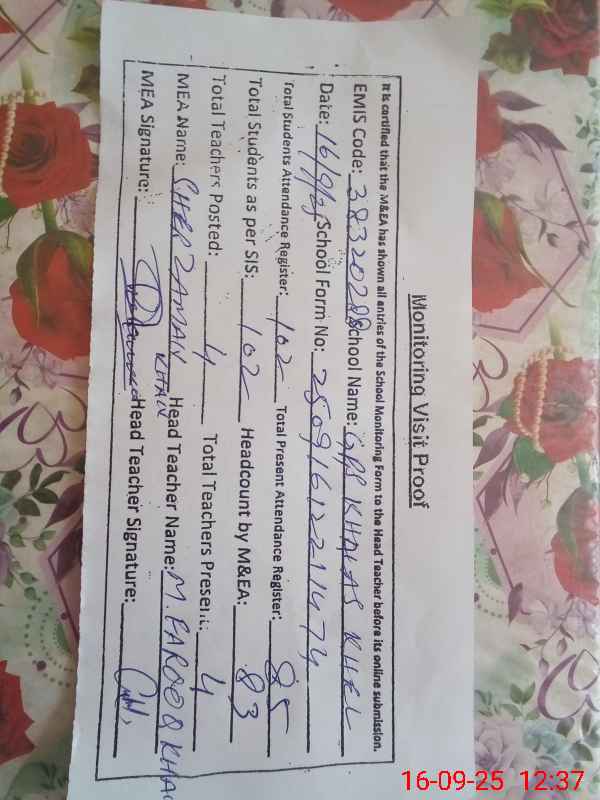 Monitoring Visit Proof
It is certified that the M&EA has shown all entries of the School Monitoring Form to the Head Teacher before its online submission.
EMIS Code: 38320288 School Name: GPS KHALAS KHEL
Date: 16/9/25 School Form No: 25091612211474
Total Students Attendance Register: 102 Total Present Attendance Register: 85
Total Students as per SIS: 102 Headcount by M&EA: 83
Total Teachers Posted: 4 Total Teachers Present: 4
MEA Name: SHER ZAMAN KHAN Head Teacher Name: M. FAROOQ KHAN
MEA Signature: Head Teacher Signature:
16-09-25 12:37